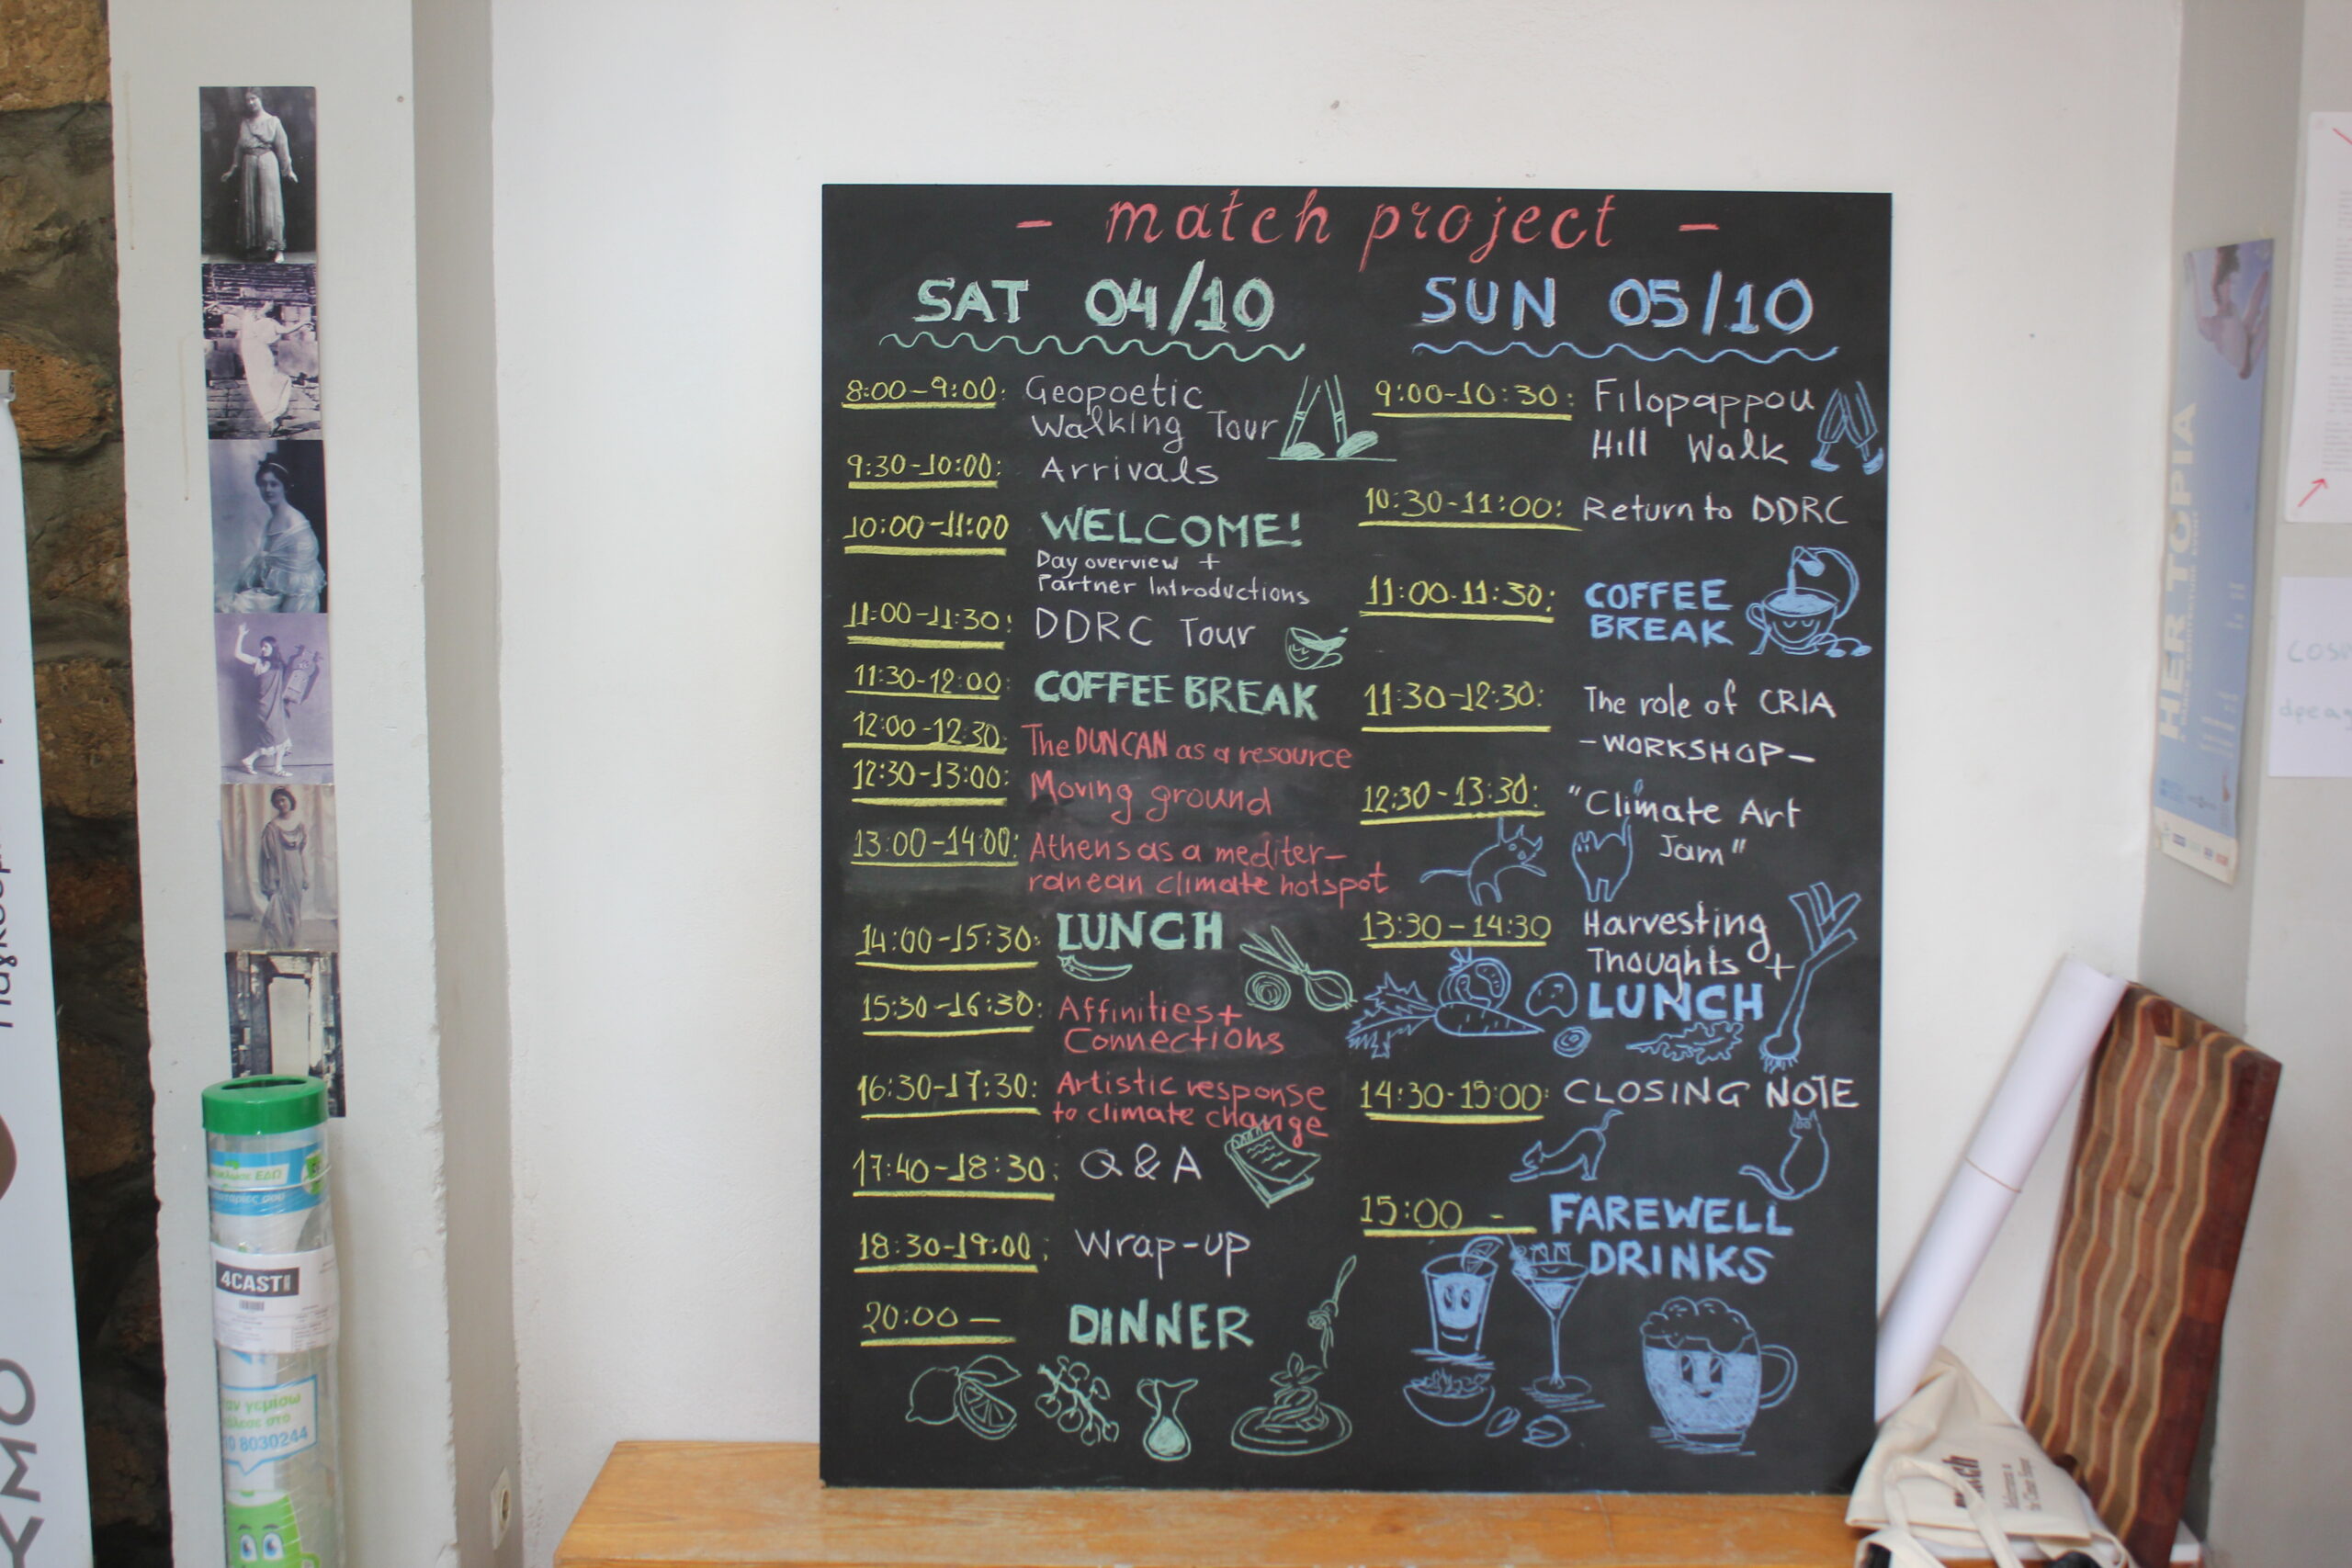 - match project -
SAT 04/10
8:00-9:00: Geopoetic
Walking Tour
9:30-10:00: Arrivals
10:00-11:00 WELCOME!
Day overview +
Partner Introductions
11:00-11:30: DDRC Tour
11:30-12:00: COFFEE BREAK
12:00-12:30: The DUNCAN as a resource
12:30-13:00: Moving ground
13:00-14:00: Athens as a mediter-
ranean climate hotspot
14:00-15:30: LUNCH
15:30-16:30: Affinities +
Connections
16:30-17:30: Artistic response
to climate change
17:40-18:30: Q & A
18:30-19:00: Wrap-up
20:00 - DINNER
SUN 05/10
9:00-10:30: Filopappou
Hill Walk
10:30-11:00: Return to DDRC
11:00-11:30: COFFEE
BREAK
11:30-12:30: The role of CRIA
-WORKSHOP-
12:30-13:30: "Climate Art
Jam"
13:30-14:30 Harvesting
Thoughts +
LUNCH
14:30-15:00: CLOSING NOTE
15:00 - FAREWELL
DRINKS
HER TOPIA
4CAST
αν γεμίσω
8030244